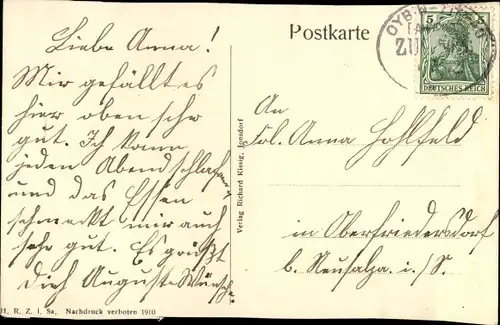 Liebe Anna!
Mir gefällt es
hier oben sehr
gut. Ich kann
jeden Abend schlafen
und das Essen
schmeckt mir auch
sehr gut. Es grüßt
Dich Auguste Wünsche.
11. R. Z. i. Sa, Nachdruck verboten 1910
Verlag Richard Kissig, Jonsdorf
Postkarte
OYBIN
ZU
5 5
DEUTSCHES REICH
An
Frl. Anna Hohlfeld
in Oberfriedersdorf
b. Neusalza i./S.